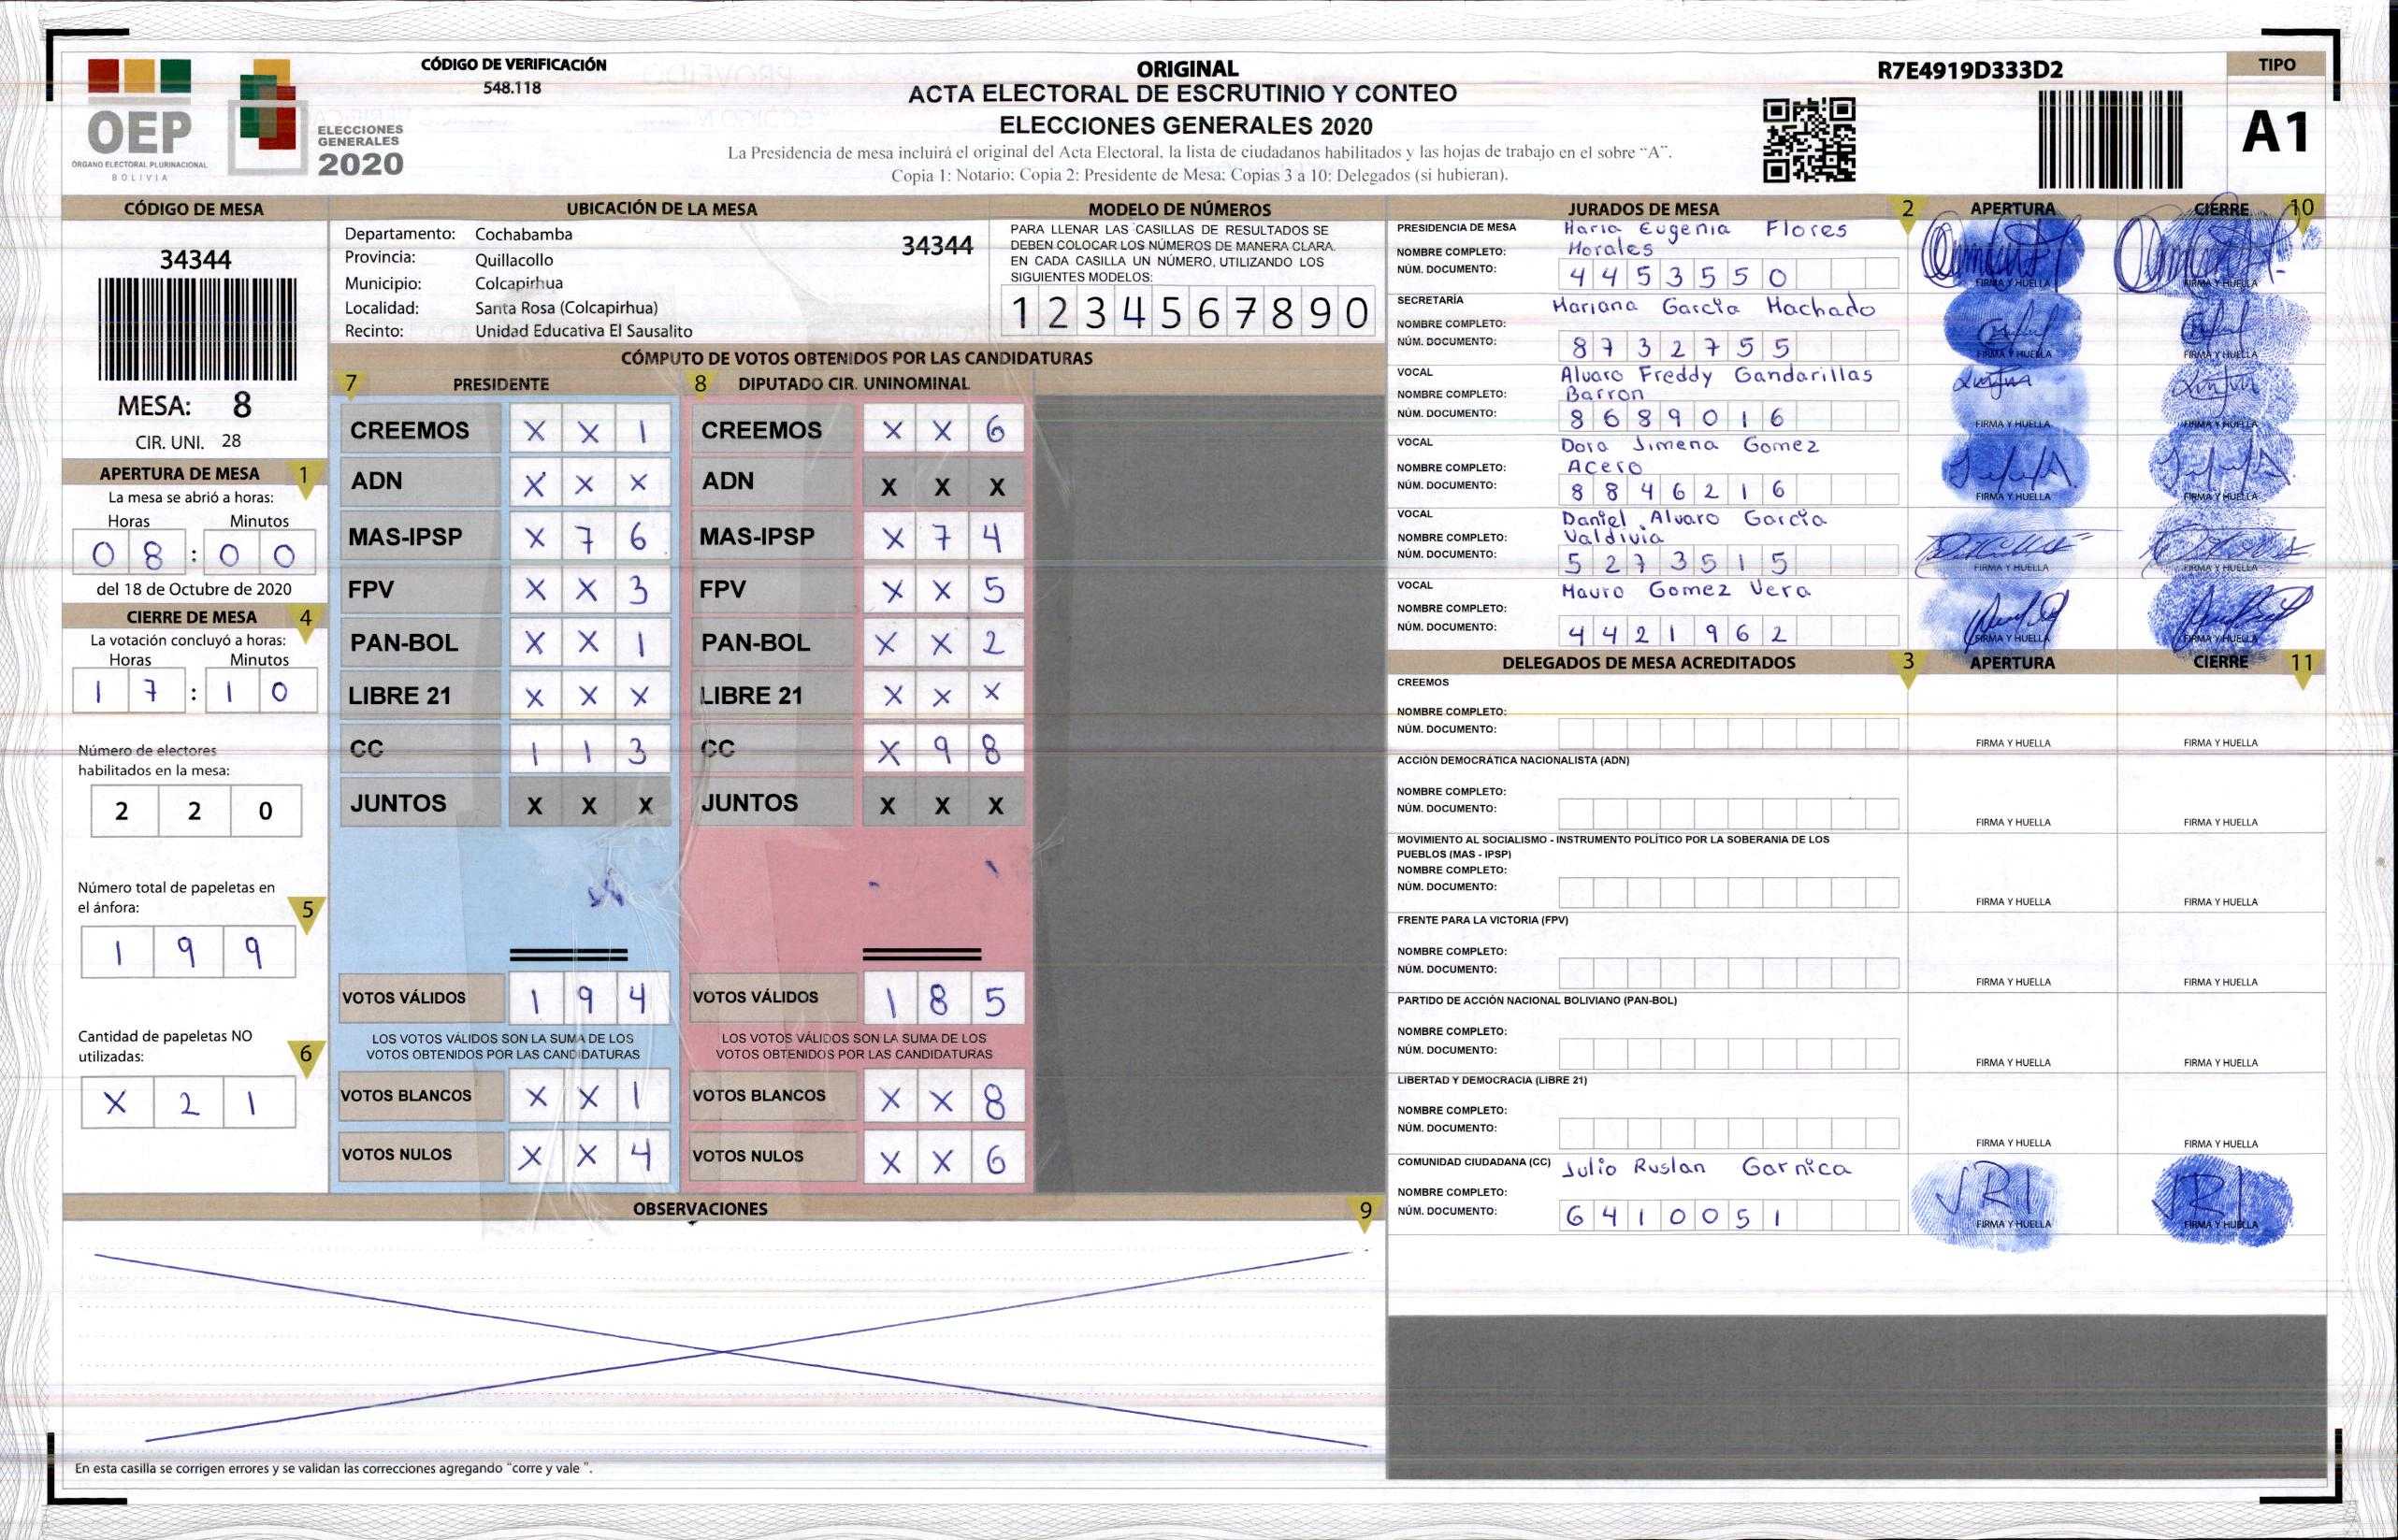 CÓDIGO DE VERIFICACIÓN
548.118
OEP
ÓRGANO ELECTORAL PLURINACIONAL
BOLIVIA
ELECCIONES
GENERALES
2020
ORIGINAL
ACTA ELECTORAL DE ESCRUTINIO Y CONTEO
ELECCIONES GENERALES 2020
La Presidencia de mesa incluirá el original del Acta Electoral, la lista de ciudadanos habilitados y las hojas de trabajo en el sobre “A”.
Copia 1: Notario; Copia 2: Presidente de Mesa; Copias 3 a 10: Delegados (si hubieran).
R7E4919D333D2
TIPO
A1
CÓDIGO DE MESA
34344
MESA: 8
CIR. UNI. 28
APERTURA DE MESA 1
La mesa se abrió a horas:
Horas Minutos
0 8 : 0 0
del 18 de Octubre de 2020
CIERRE DE MESA 4
La votación concluyó a horas:
Horas Minutos
1 7 : 1 0
Número de electores
habilitados en la mesa:
2 2 0
Número total de papeletas en
el ánfora: 5
1 9 9
Cantidad de papeletas NO
utilizadas: 6
X 2 1
UBICACIÓN DE LA MESA
Departamento: Cochabamba
Provincia: Quillacollo
Municipio: Colcapirhua
Localidad: Santa Rosa (Colcapirhua)
Recinto: Unidad Educativa El Sausalito
34344
MODELO DE NÚMEROS
PARA LLENAR LAS CASILLAS DE RESULTADOS SE
DEBEN COLOCAR LOS NÚMEROS DE MANERA CLARA.
EN CADA CASILLA UN NÚMERO, UTILIZANDO LOS
SIGUIENTES MODELOS:
1 2 3 4 5 6 7 8 9 0
CÓMPUTO DE VOTOS OBTENIDOS POR LAS CANDIDATURAS
7 PRESIDENTE 8 DIPUTADO CIR. UNINOMINAL
CREEMOS X X 1 CREEMOS X X 6
ADN X X X ADN X X X
MAS-IPSP X 7 6 MAS-IPSP X 7 4
FPV X X 3 FPV X X 5
PAN-BOL X X 1 PAN-BOL X X 2
LIBRE 21 X X X LIBRE 21 X X X
CC 1 1 3 CC X 9 8
JUNTOS X X X JUNTOS X X X
VOTOS VÁLIDOS 1 9 4 VOTOS VÁLIDOS 1 8 5
LOS VOTOS VÁLIDOS SON LA SUMA DE LOS LOS VOTOS VÁLIDOS SON LA SUMA DE LOS
VOTOS OBTENIDOS POR LAS CANDIDATURAS VOTOS OBTENIDOS POR LAS CANDIDATURAS
VOTOS BLANCOS X X 1 VOTOS BLANCOS X X 8
VOTOS NULOS X X 4 VOTOS NULOS X X 6
OBSERVACIONES 9
En esta casilla se corrigen errores y se validan las correcciones agregando “corre y vale ”.
JURADOS DE MESA 2 APERTURA CIERRE 10
PRESIDENCIA DE MESA Maria Eugenia Flores
NOMBRE COMPLETO: Morales
NÚM. DOCUMENTO: 4 4 5 3 5 5 0
FIRMA Y HUELLA FIRMA Y HUELLA
SECRETARÍA Mariana García Machado
NOMBRE COMPLETO:
NÚM. DOCUMENTO: 8 7 3 2 7 5 5
FIRMA Y HUELLA FIRMA Y HUELLA
VOCAL Alvaro Freddy Gandarillas
NOMBRE COMPLETO: Barron
NÚM. DOCUMENTO: 8 6 8 9 0 1 6
FIRMA Y HUELLA FIRMA Y HUELLA
VOCAL Dora Jimena Gomez
NOMBRE COMPLETO: Acero
NÚM. DOCUMENTO: 8 8 4 6 2 1 6
FIRMA Y HUELLA FIRMA Y HUELLA
VOCAL Daniel Alvaro García
NOMBRE COMPLETO: Valdivia
NÚM. DOCUMENTO: 5 2 7 3 5 1 5
FIRMA Y HUELLA FIRMA Y HUELLA
VOCAL Mauro Gomez Vera
NOMBRE COMPLETO:
NÚM. DOCUMENTO: 4 4 2 1 9 6 2
FIRMA Y HUELLA FIRMA Y HUELLA
DELEGADOS DE MESA ACREDITADOS 3 APERTURA CIERRE 11
CREEMOS
NOMBRE COMPLETO:
NÚM. DOCUMENTO:
FIRMA Y HUELLA FIRMA Y HUELLA
ACCIÓN DEMOCRÁTICA NACIONALISTA (ADN)
NOMBRE COMPLETO:
NÚM. DOCUMENTO:
FIRMA Y HUELLA FIRMA Y HUELLA
MOVIMIENTO AL SOCIALISMO - INSTRUMENTO POLÍTICO POR LA SOBERANIA DE LOS
PUEBLOS (MAS - IPSP)
NOMBRE COMPLETO:
NÚM. DOCUMENTO:
FIRMA Y HUELLA FIRMA Y HUELLA
FRENTE PARA LA VICTORIA (FPV)
NOMBRE COMPLETO:
NÚM. DOCUMENTO:
FIRMA Y HUELLA FIRMA Y HUELLA
PARTIDO DE ACCIÓN NACIONAL BOLIVIANO (PAN-BOL)
NOMBRE COMPLETO:
NÚM. DOCUMENTO:
FIRMA Y HUELLA FIRMA Y HUELLA
LIBERTAD Y DEMOCRACIA (LIBRE 21)
NOMBRE COMPLETO:
NÚM. DOCUMENTO:
FIRMA Y HUELLA FIRMA Y HUELLA
COMUNIDAD CIUDADANA (CC) Julio Ruslan Garnica
NOMBRE COMPLETO:
NÚM. DOCUMENTO: 6 4 1 0 0 5 1
FIRMA Y HUELLA FIRMA Y HUELLA